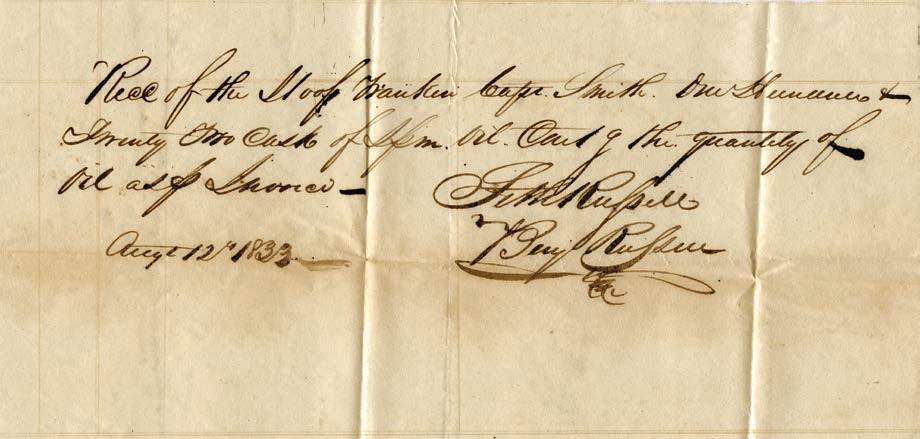 Recd of the Sloop Franklin Capt. Smith. One Hundred &
Twenty Two Cask of Spm. Oil. Contg the quantity of
Oil as pr Invoice —
Seth Russell
Augt 12th 1833 Benj Russell